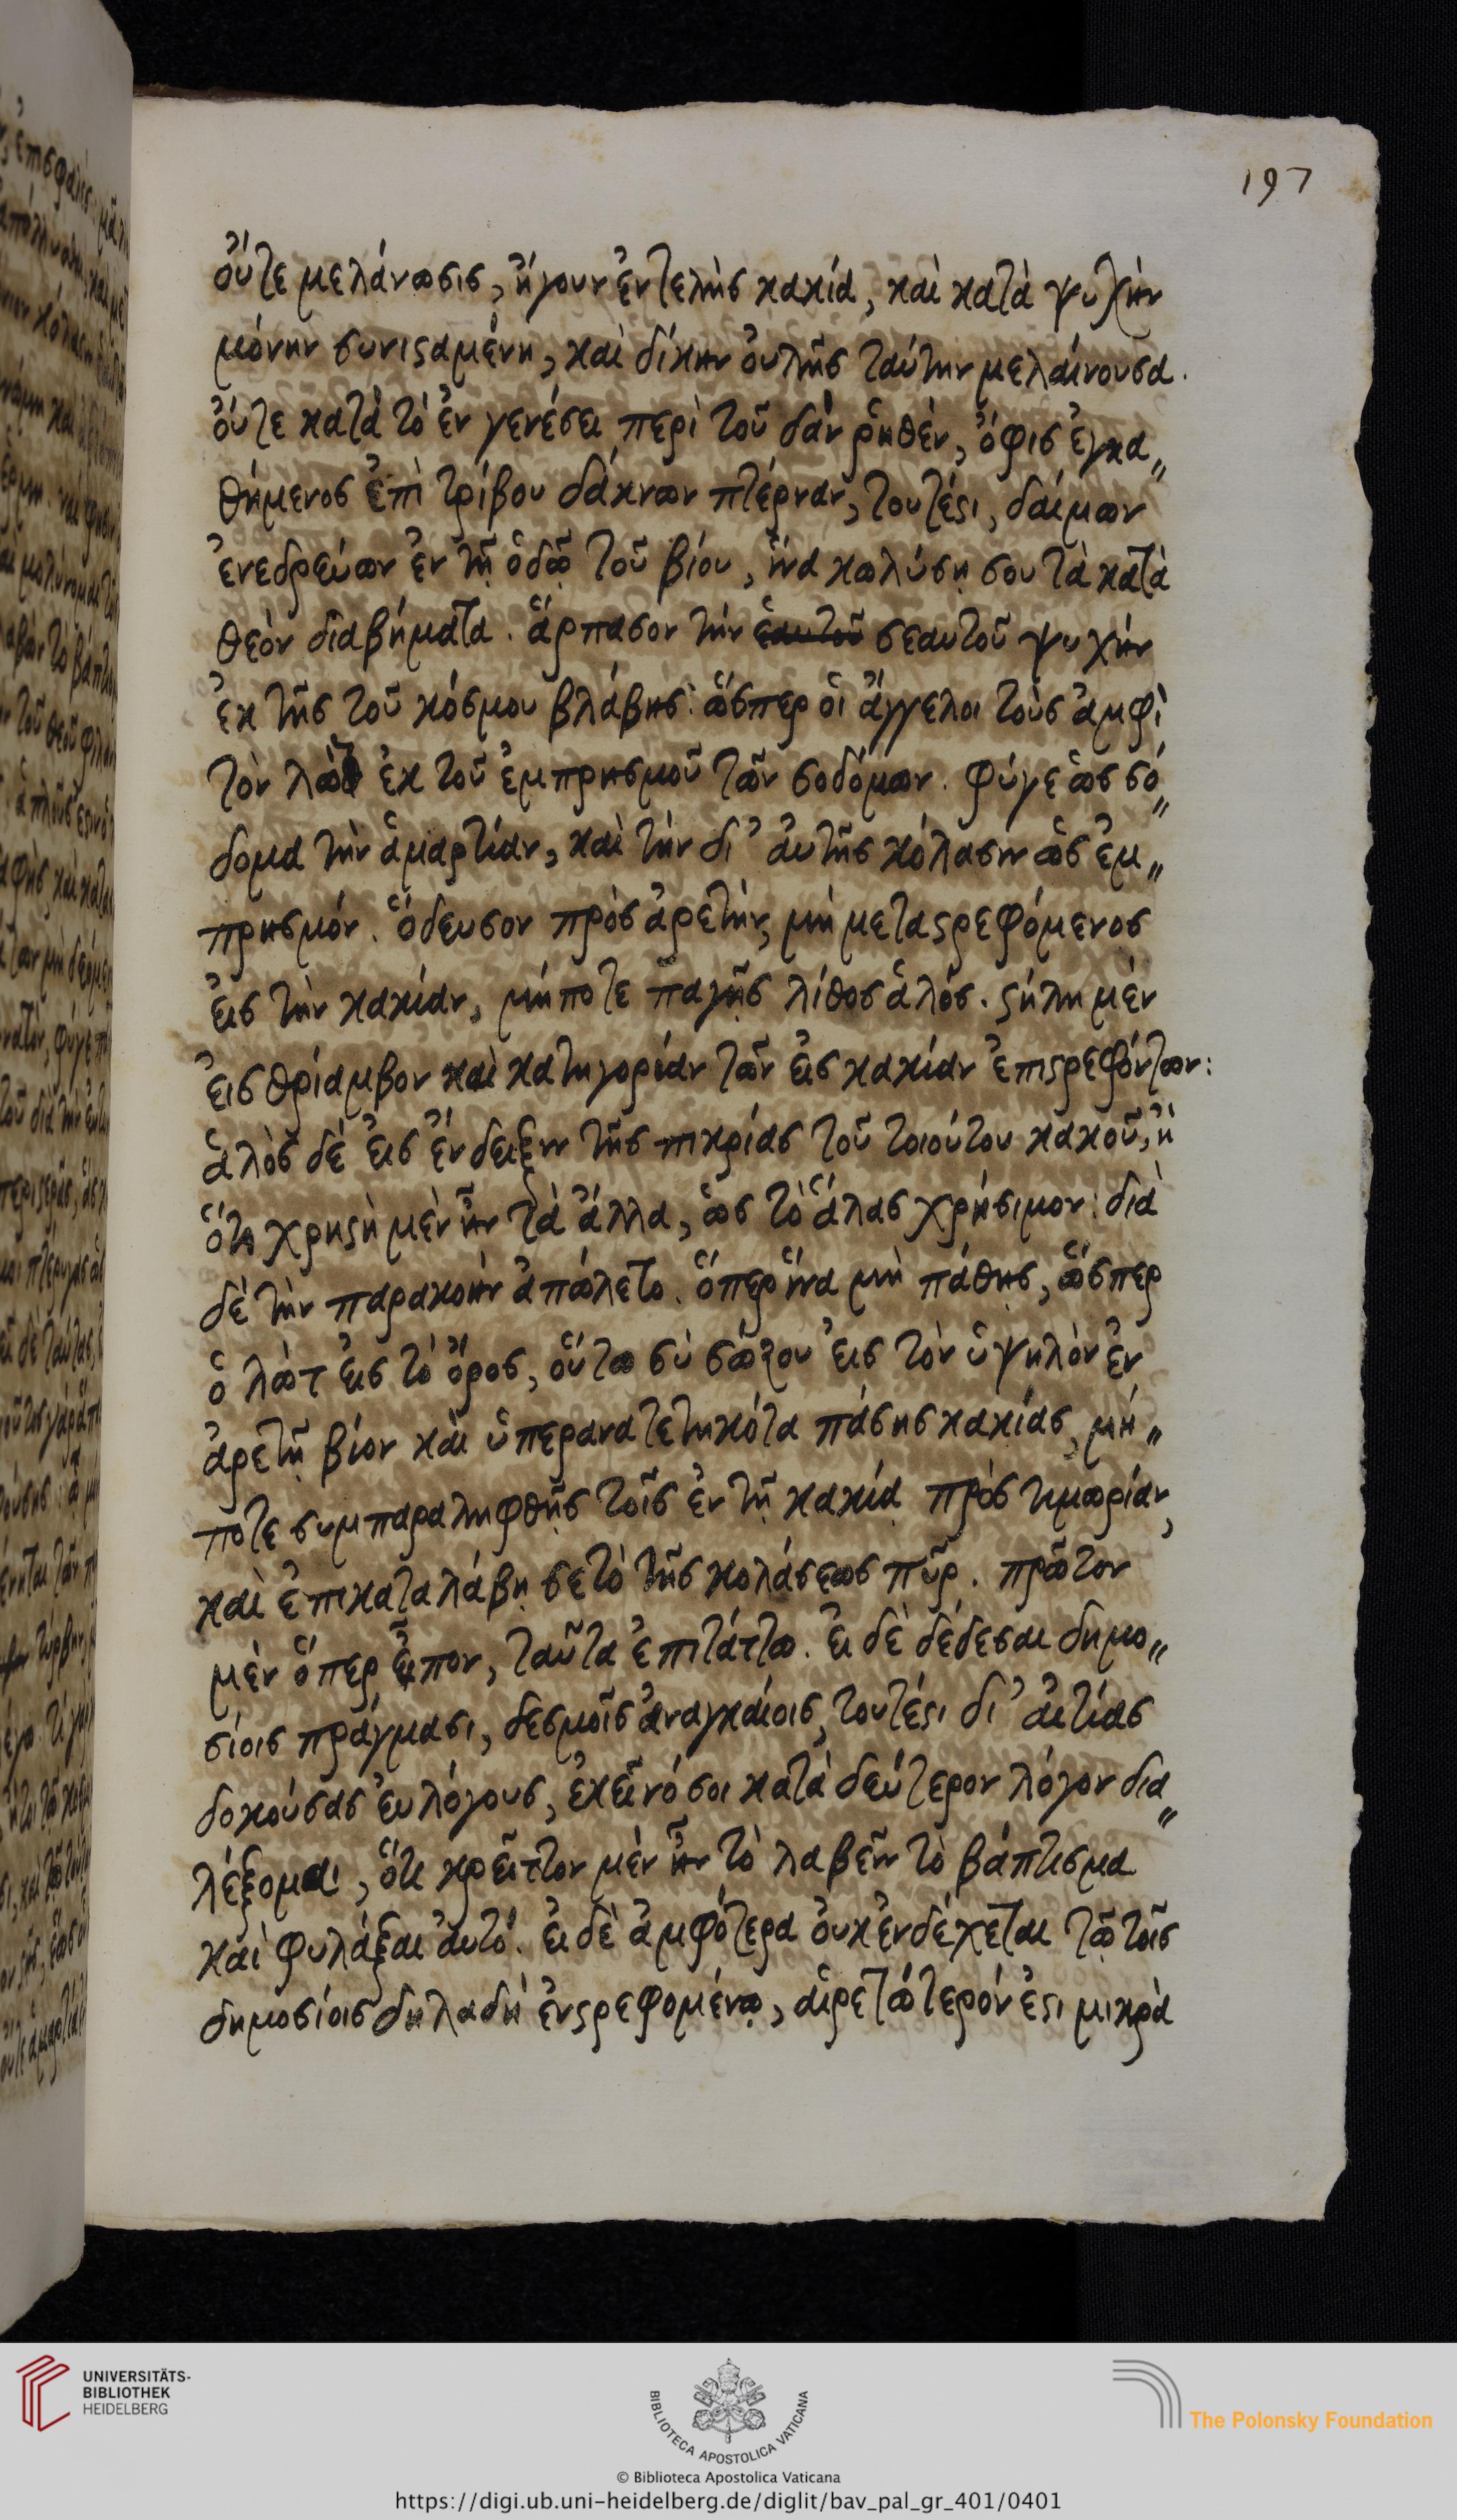 197
οὔτε μελάνωσις, ἤγουν ἐντελὴς κακία, καὶ κατὰ ψυχὴν
μόνην συνισταμένη, καὶ δίκην οὐλῆς ταύτην μελαίνουσα.
οὔτε κατὰ τὸ ἐν γενέσει περὶ τοῦ δὰν ῥηθὲν, ὄφις ἐγκα„
θήμενος ἐπὶ τρίβου δάκνων πτέρναν, τουτέστι, δαίμων
ἐνεδρεύων ἐν τῇ ὁδῷ τοῦ βίου, ἵνα κωλύσῃ σου τὰ κατὰ
θεὸν διαβήματα. ἅρπασον τὴν ἑαυτοῦ σεαυτοῦ ψυχὴν
ἐκ τῆς τοῦ κόσμου βλάβης: ὥσπερ οἱ ἄγγελοι τοὺς ἀμφὶ
τὸν λὼτ ἐκ τοῦ ἐμπρησμοῦ τῶν σοδόμων. φύγε ὡς σό„
δομα τὴν ἁμαρτίαν, καὶ τὴν δι' αὐτῆς κόλασιν ὡς ἐμ„
πρησμόν. ὅδευσον πρὸς ἀρετὴν, μὴ μεταστρεφόμενος
εἰς τὴν κακίαν, μήποτε παγῇς λίθος ἁλός. στήλη μὲν
εἰς θρίαμβον καὶ κατηγορίαν τῶν εἰς κακίαν ἐπιστρεφόντων:
ἁλὸς δὲ εἰς ἔνδειξιν τῆς πικρίας τοῦ τοιούτου κακοῦ, ἢ
ὅτι χρηστὴ μὲν ἦν τὰ ἄλλα, ὡς τὸ ἅλας χρήσιμον: διὰ
δὲ τὴν παρακοὴν ἀπώλετο. ὅπερ ἵνα μὴ πάθῃς, ὥσπερ
ὁ λὼτ εἰς τὸ ὄρος, οὕτω σὺ σώζου εἰς τὸν ὑψηλὸν ἐν
ἀρετῇ βίον καὶ ὑπερανατετηκότα πάσης κακίας, μή„
ποτε συμπαραληφθῇς τοῖς ἐν τῇ κακίᾳ πρὸς τιμωρίαν,
καὶ ἐπικαταλάβῃ σε τὸ τῆς κολάσεως πῦρ. πρῶτον
μὲν ὅπερ εἶπον, ταῦτα ἐπιτάττω. εἰ δὲ δέδεσαι δημο„
σίοις πράγμασι, δεσμοῖς ἀναγκαίοις, τουτέστι δι' αἰτίας
δοκούσας εὐλόγους, ἐκεῖνό σοι κατὰ δεύτερον λόγον δια„
λέξομαι, ὅτι κρεῖττον μὲν ἦν τὸ λαβεῖν τὸ βάπτισμα
καὶ φυλάξαι αὐτό. εἰ δὲ ἀμφότερα οὐκ ἐνδέχεται τῷ τοῖς
δημοσίοις δηλαδὴ ἐνστρεφομένῳ, αἱρετώτερόν ἐστι μικρὰ
UNIVERSITÄTS-
BIBLIOTHEK
HEIDELBERG
BIBLIOTECA APOSTOLICA VATICANA
The Polonsky Foundation
© Biblioteca Apostolica Vaticana
https://digi.ub.uni-heidelberg.de/diglit/bav_pal_gr_401/0401